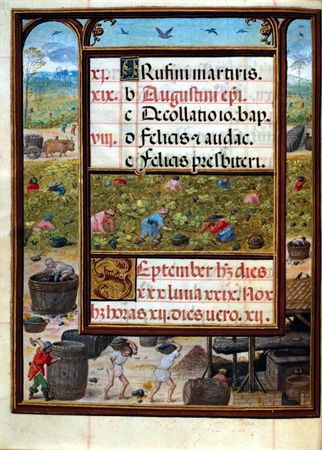 xj. A Rufini martiris.
xix. b Augustini epi.
c Decollatio io. bap.
viii. d Felicis ⁊ audac.
e Felicis presbiteri.
September hz dies
xxx luna xxix. Nox
hz horas xij. dies vero. xij.